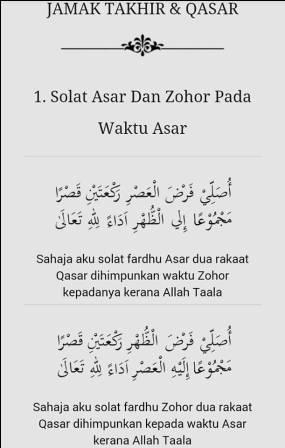 JAMAK TAKHIR & QASAR
1. Solat Asar Dan Zohor Pada
Waktu Asar
أُصَلِّيْ فَرْضَ الْعَصْرِ رَكْعَتَيْنِ قَصْرًا
مَجْمُوْعًا إِلَي الْظُّهْرِ اَدَاءً لِلّٰهِ تَعَالَىٰ
Sahaja aku solat fardhu Asar dua rakaat
Qasar dihimpunkan waktu Zohor
kepadanya kerana Allah Taala
أُصَلِّيْ فَرْضَ الْظُّهْرِ رَكْعَتَيْنِ قَصْرًا
مَجْمُوْعًا إِلَيْهِ الْعَصْرِ اَدَاءً لِلّٰهِ تَعَالَىٰ
Sahaja aku solat fardhu Zohor dua rakaat
Qasar dihimpunkan kepada waktu Asar
kerana Allah Taala